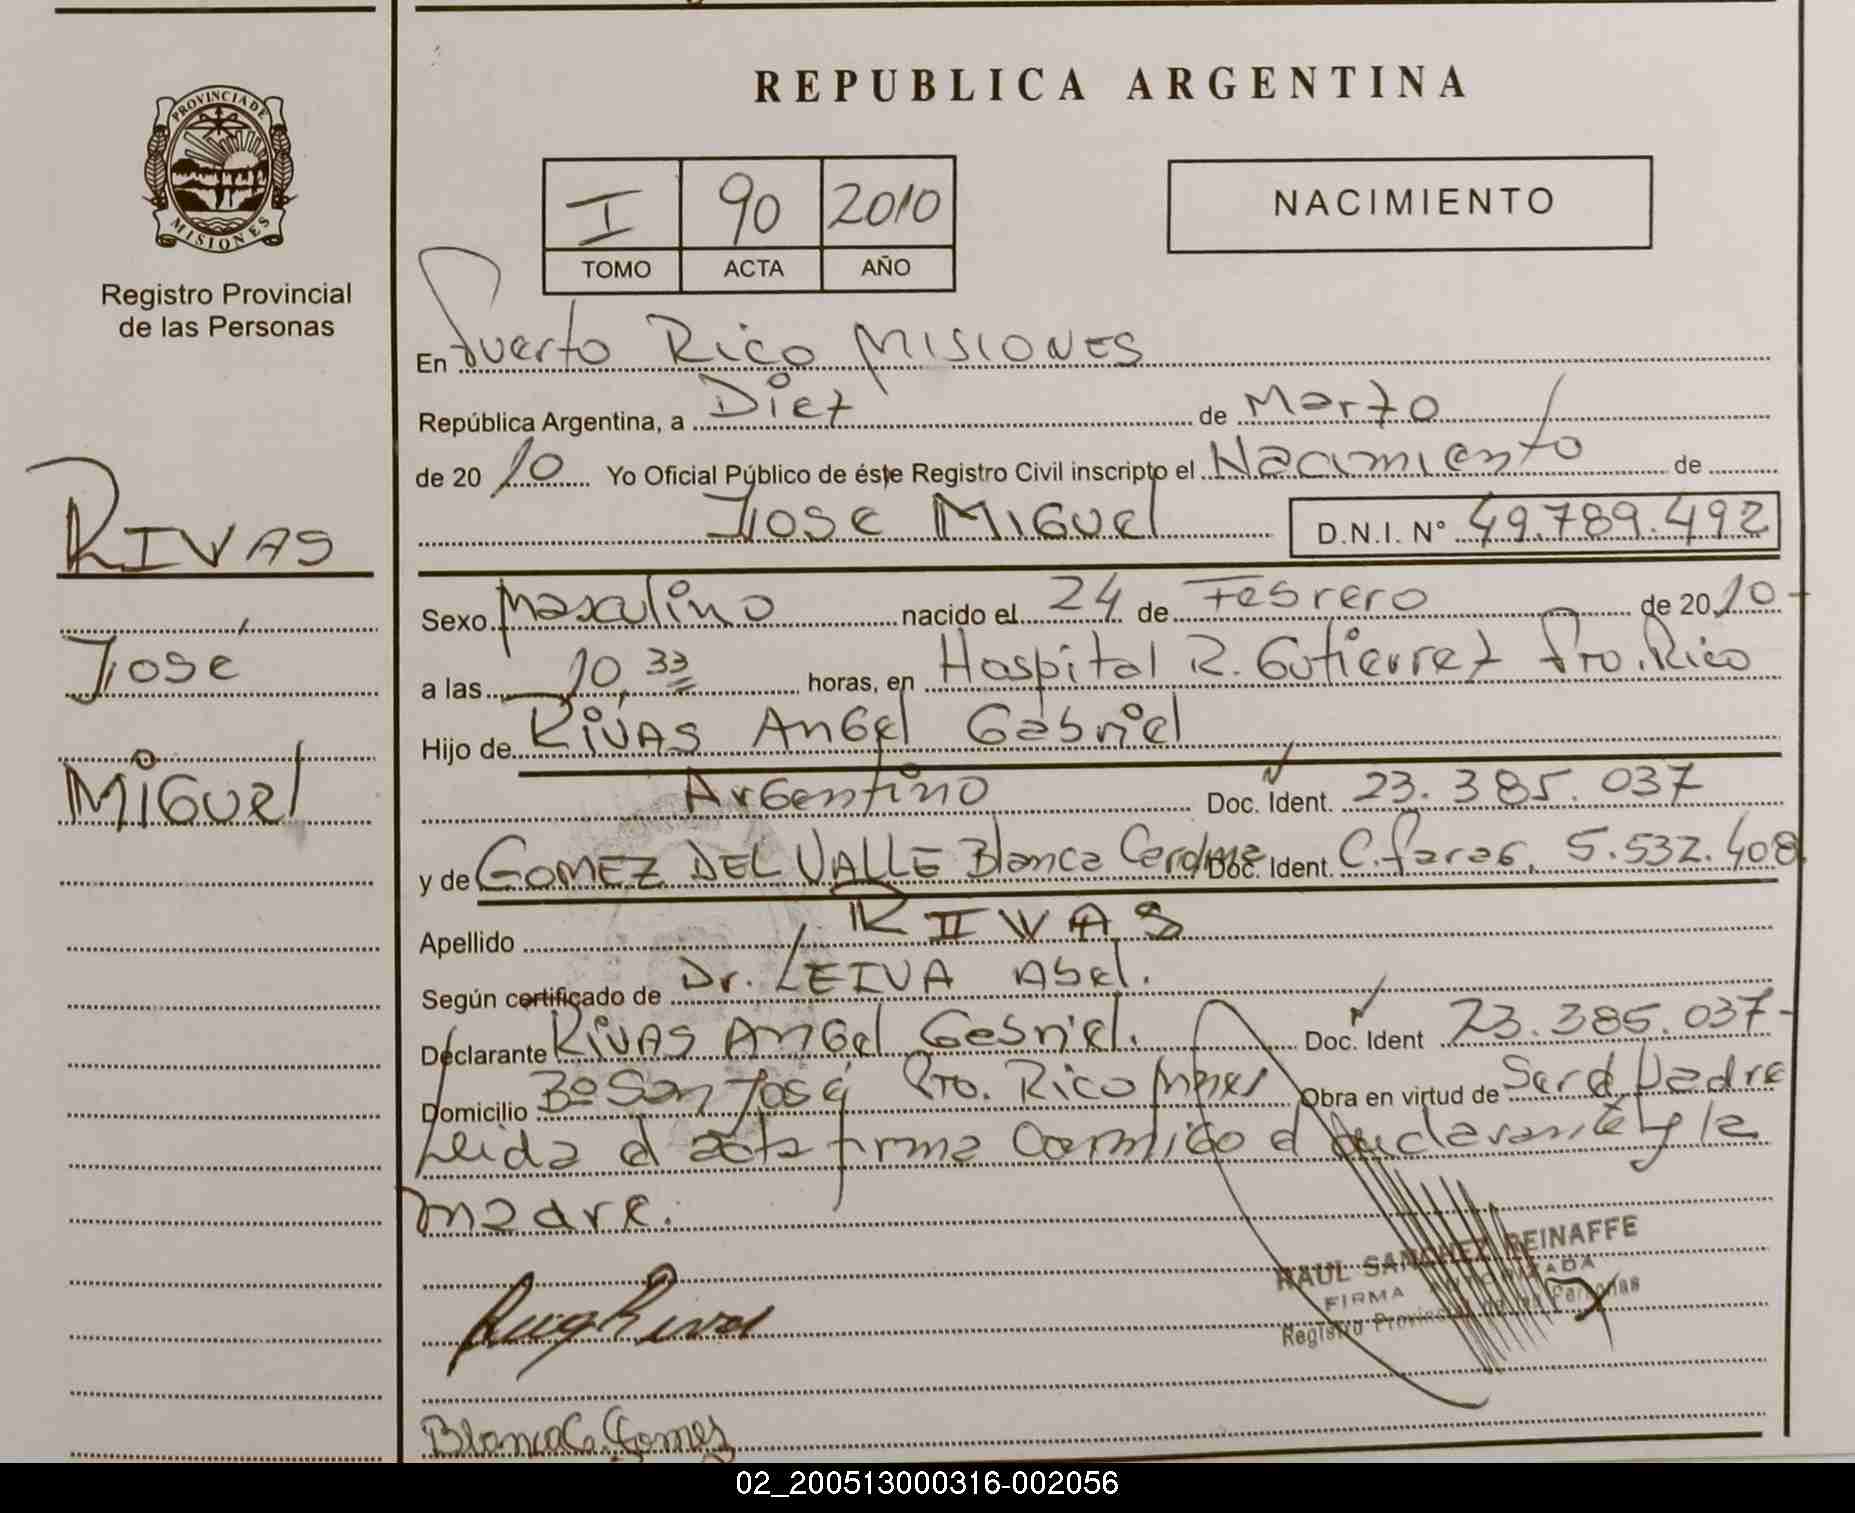 PROVINCIA DE
MISIONES
Registro Provincial
de las Personas
RIVAS
José
Miguel
REPUBLICA ARGENTINA
I 90 2010
TOMO ACTA AÑO
NACIMIENTO
En Puerto Rico Misiones
República Argentina, a Diez de Marzo
de 20 10 Yo Oficial Público de éste Registro Civil inscripto el Nacimiento de
José Miguel D.N.I. Nº 49.789.492
Sexo Masculino nacido el 24 de Febrero de 20 10-
a las 10,33 horas, en Hospital R. Gutierrez Pto. Rico
Hijo de RIVAS Angel Gabriel
Argentino Doc. Ident. 23.385.037
y de GOMEZ DEL VALLE Blanca Doc. Ident. 5.532.408
Apellido RIVAS
Según certificado de Dr. LEIVA Abel.
Declarante RIVAS Angel Gabriel. Doc. Ident 23.385.037-
Domicilio Bº San José Pto. Rico Mnes Obra en virtud de Ser el Padre
Leida el acta firma conmigo el declarante y la
madre.
RAUL SANCHEZ REINAFFE
FIRMA AUTORIZADA
Registro Provincial de las Personas
Blanca C. Gomez
02_200513000316-002056